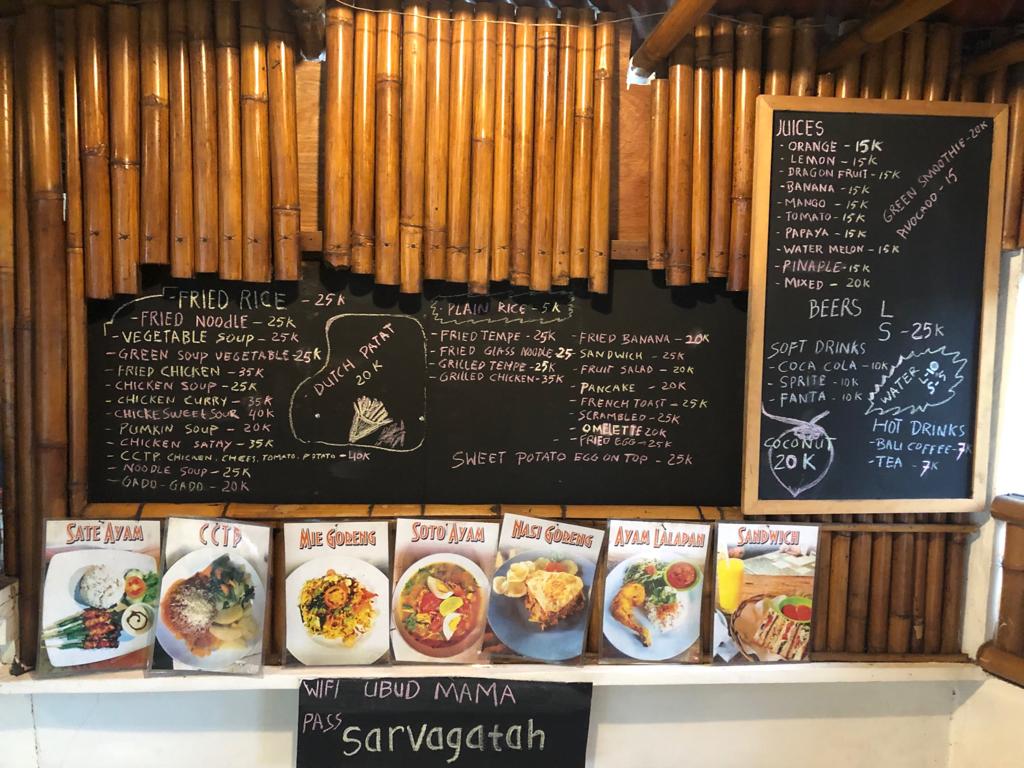 FRIED RICE - 25K
- FRIED NOODLE - 25K
- VEGETABLE SOUP - 25K
- GREEN SOUP VEGETABLE - 25K
- FRIED CHICKEN - 35K
- CHICKEN SOUP - 25K
- CHICKEN CURRY - 35K
- CHICKE SWEET SOUR 40K
- PUMKIN SOUP - 20K
- CHICKEN SATAY - 35K
- CCTP. CHICKEN, CHEES, TOMATO, POTATO - 40K
- NOODLE SOUP - 25K
- GADO-GADO - 20K
DUTCH PATAT
20K
PLAIN RICE - 5K
- FRIED TEMPE - 25K
- FRIED GLASS NOODLE 25-
- GRILLED TEMPE - 25K
- GRILLED CHICKEN - 35K
- FRIED BANANA - 20K
- SANDWICH - 25K
- FRUIT SALAD - 20K
- PANCAKE - 20K
- FRENCH TOAST - 25K
- SCRAMBLED - 25K
- OMELETTE 20K
- FRIED EGG - 25K
SWEET POTATO EGG ON TOP - 25K
JUICES
- ORANGE - 15K
- LEMON - 15K
- DRAGON FRUIT - 15K
- BANANA - 15K
- MANGO - 15K
- TOMATO - 15K
- PAPAYA - 15K
- WATER MELON - 15K
- PINABLE - 15K
- MIXED - 20K
GREEN SMOOTHIE - 20K
AVOCADO - 15
BEERS L
S - 25K
SOFT DRINKS
- COCA COLA - 10K
- SPRITE - 10K
- FANTA - 10K
WATER L-10
S-5
COCONUT
20K
HOT DRINKS
- BALI COFFEE - 7K
- TEA - 7K
SATE AYAM
CCTP
MIE GORENG
SOTO AYAM
NASI GORENG
AYAM LALAPAN
SANDWICH
WIFI UBUD MAMA
PASS sarvagatah